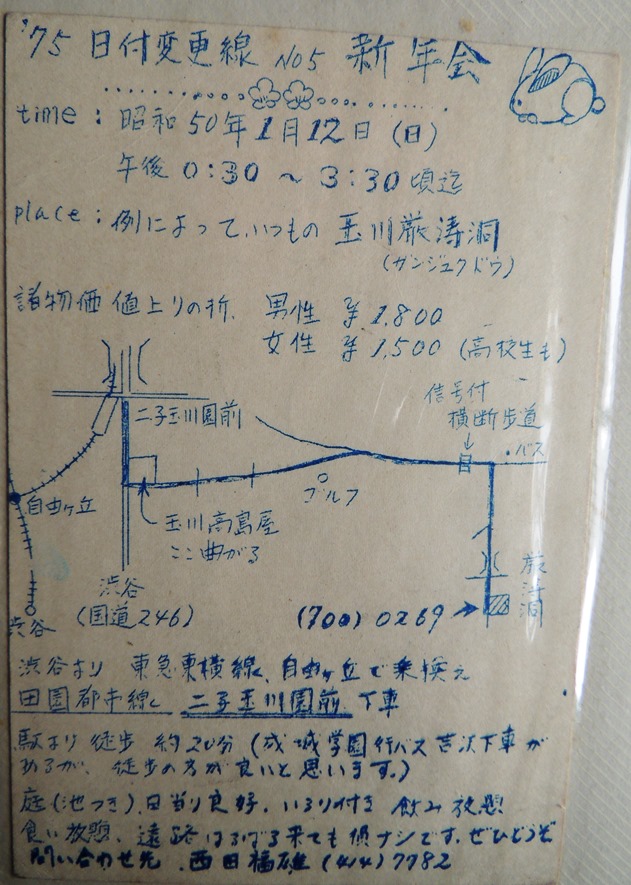 '75 日付変更線 No5 新年会
time : 昭和50年1月12日(日)
午後 0:30 ~ 3:30 頃迄
place : 例によって、いつもの 玉川巌涛洞
諸物価 値上りの折、男性 ¥1,800
女性 ¥1,500 (高校生も)
信号付
横断歩道
二子玉川園前
・バス
自由ヶ丘
ゴルフ
玉川高島屋
ここ曲がる
巌涛洞
渋谷
(国道246)
渋谷
(700) 0269
渋谷より 東急東横線、自由ヶ丘で乗換え
田園都市線 二子玉川園前 下車
駅より 徒歩 約20分 (成城学園行バス 吉沢下車が
あるが、徒歩の方が良いと思います。)
庭(池つき)、日当り良好、いろり付き 飲み放題
食い放題、遠路はるばる来ても損ナシです。ぜひどうぞ
問い合わせ先 西田福雄 (414) 7782